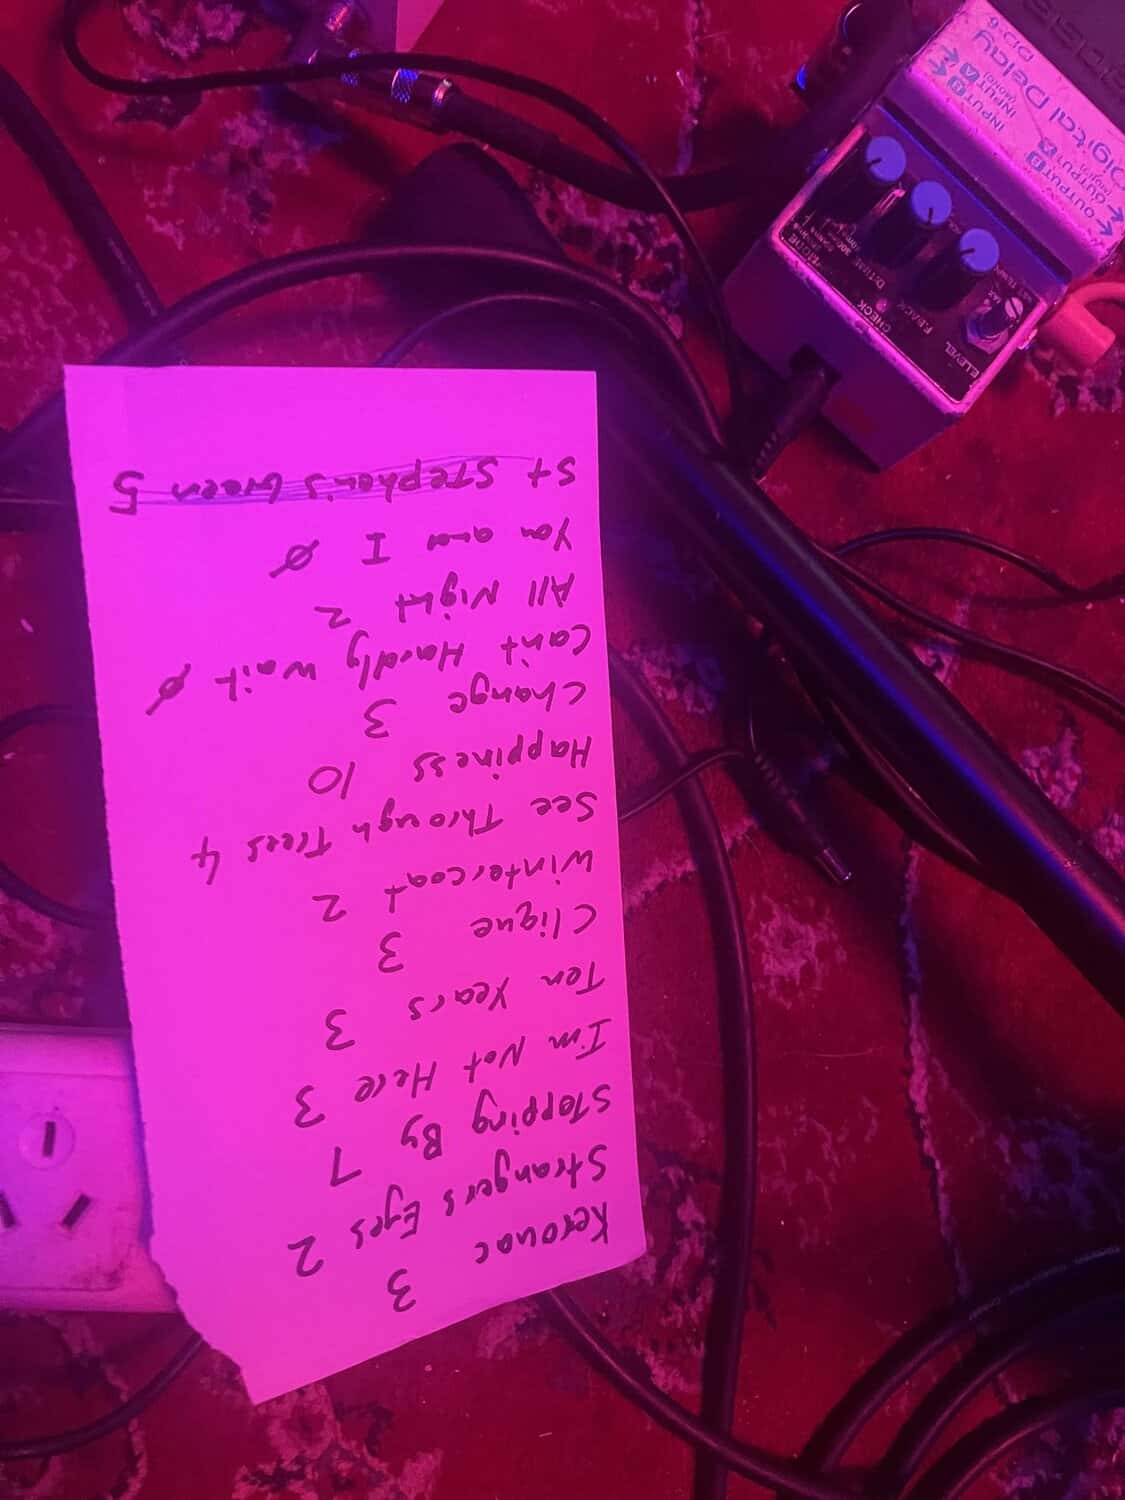 Kerouac 3
Strangers Eyes 2
Stopping By 7
I'm Not Here 3
Ten Years 3
Clique 3
Wintercoat 2
See Through Trees 4
Happiness 10
Change 3
Can't Hardly Wait Ø
All Night 2
You and I Ø
St Stephen's Green 5
E.LEVEL
F.BACK
D.TIME
MODE
CHECK
OUTPUT B
OUTPUT A
(MONO)
INPUT B
INPUT A
(MONO)
Digital Delay DD-6